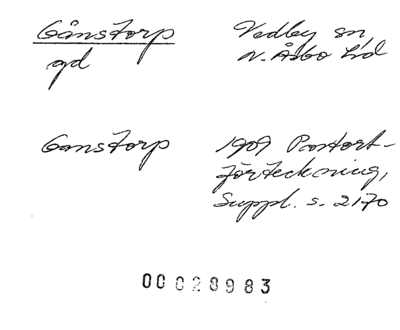 Gånstorp
gd
Vedby sn,
N. Åsbo hd
Ganstorp
1909 Postort-
förteckning,
Suppl. s. 2170
00028983